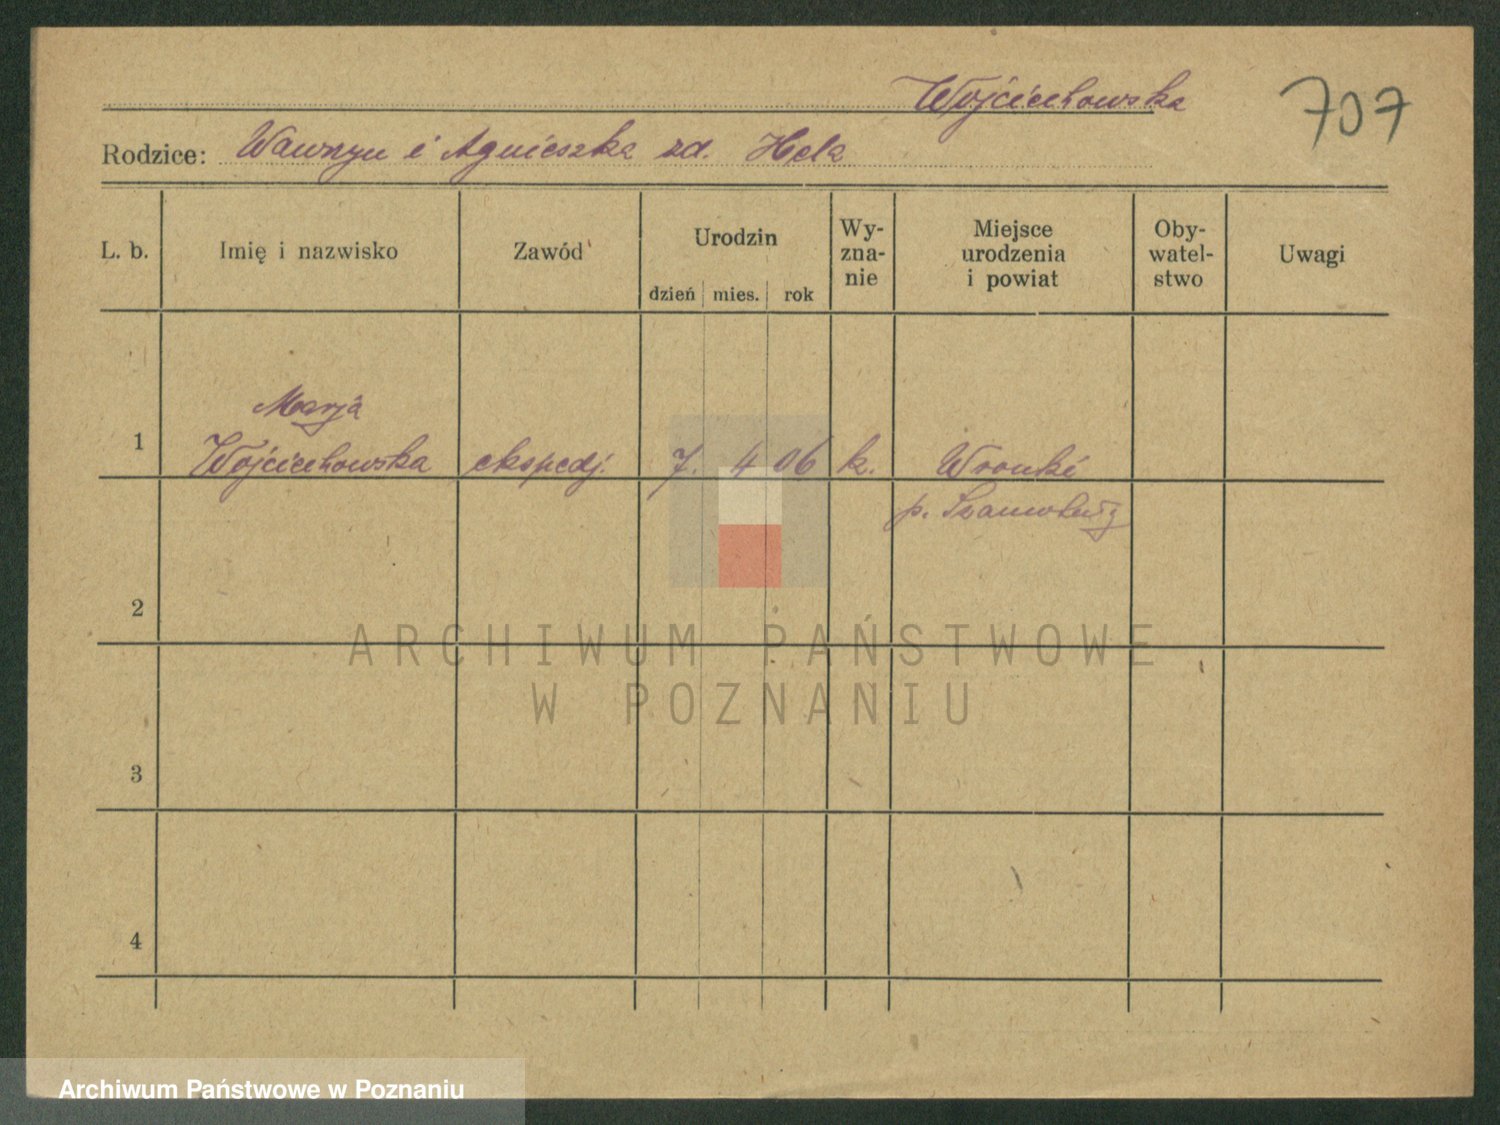 Wojciechowska
707
Rodzice: Wawrzyn i Agnieszka zd. Hela
L. b.
Imię i nazwisko
Zawód
Urodzin
dzień mies. rok
Wy-
zna-
nie
Miejsce
urodzenia
i powiat
Oby-
watel-
stwo
Uwagi
1
Marja
Wojciechowska
ekspedj.
7. 4 06
k.
Wronki
p. Szamotuły
2
3
4
ARCHIWUM PAŃSTWOWE
W POZNANIU
Archiwum Państwowe w Poznaniu